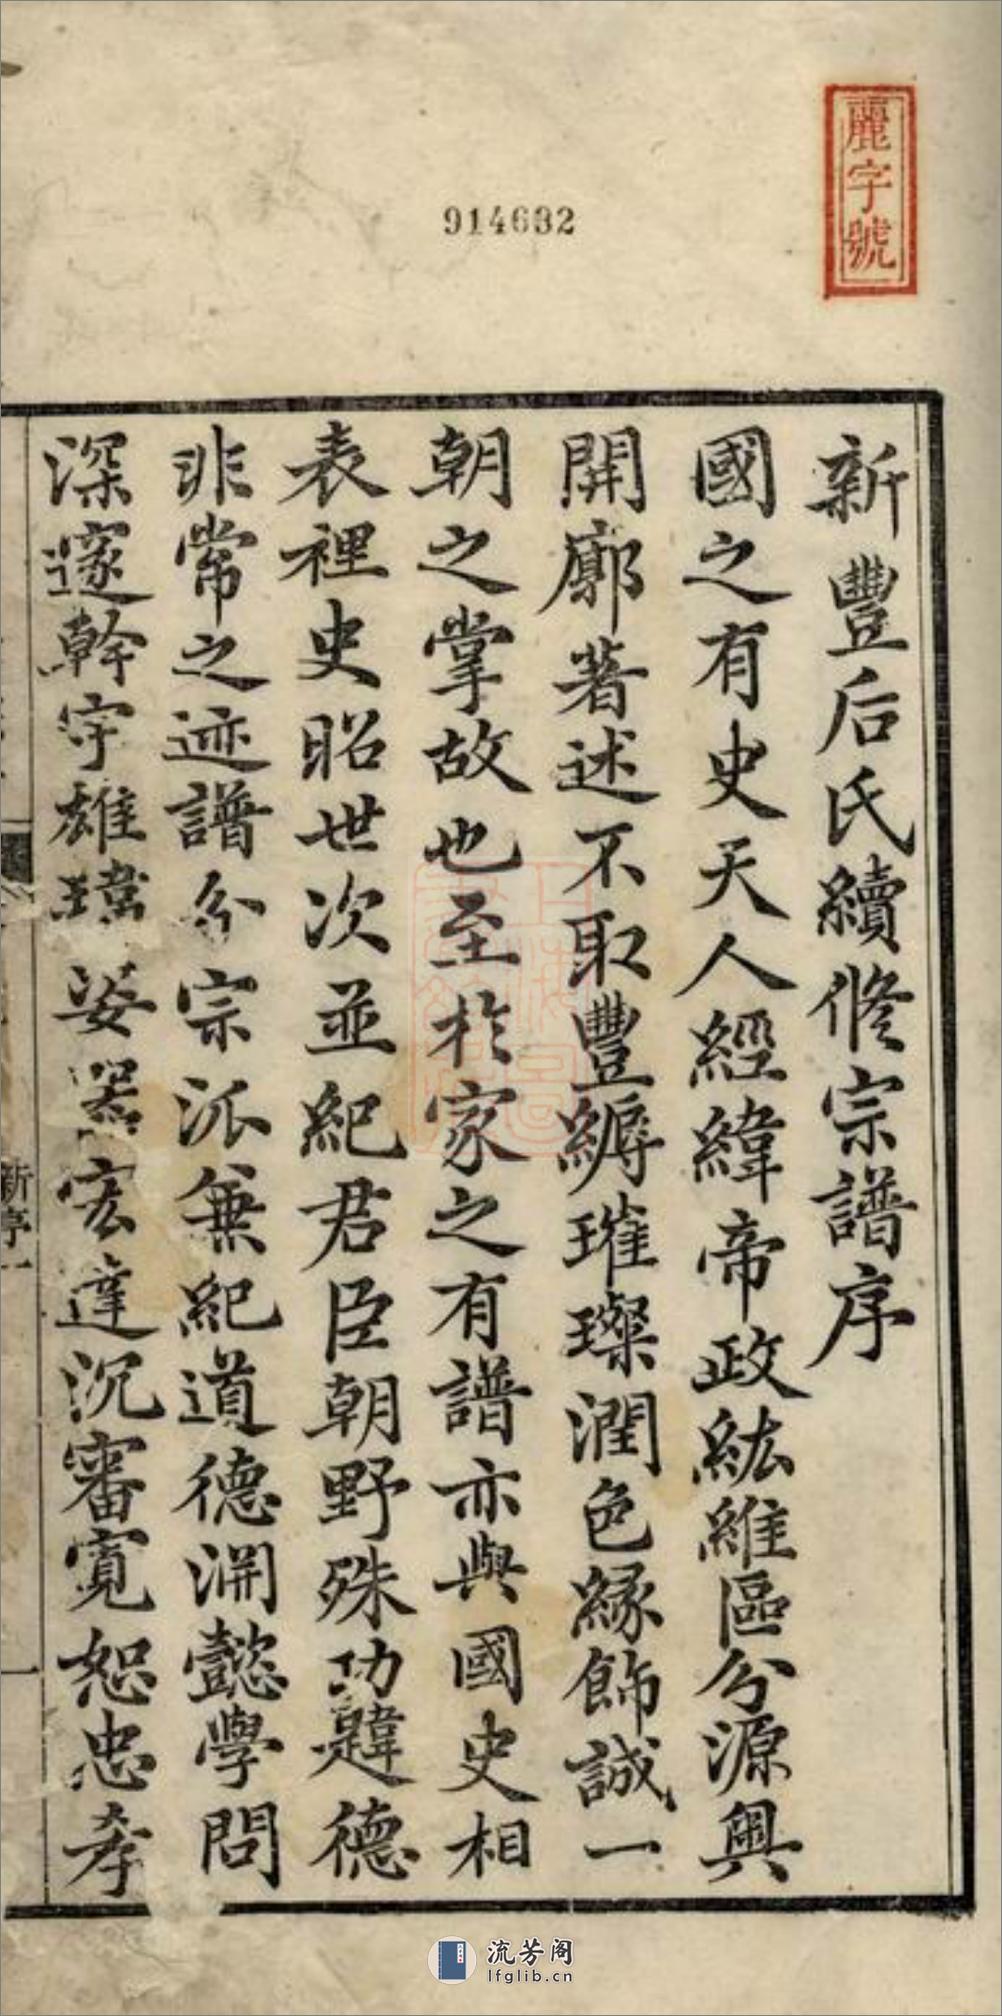 麗字號
914632
新豐后氏續修宗譜序
國之有史天人經緯帝政紘維區分源興
開廓著述不取豐縟璀璨潤色緣飾誠一
朝之掌故也至於家之有譜亦與國史相
表裡史昭世次並紀君臣朝野殊功韙德
非常之迹譜分宗派兼紀道德淵懿學問
深邃幹宇雄瑋姿器宏達沉審寬恕忠孝
新序一
一
流芳阁
lfglib.cn